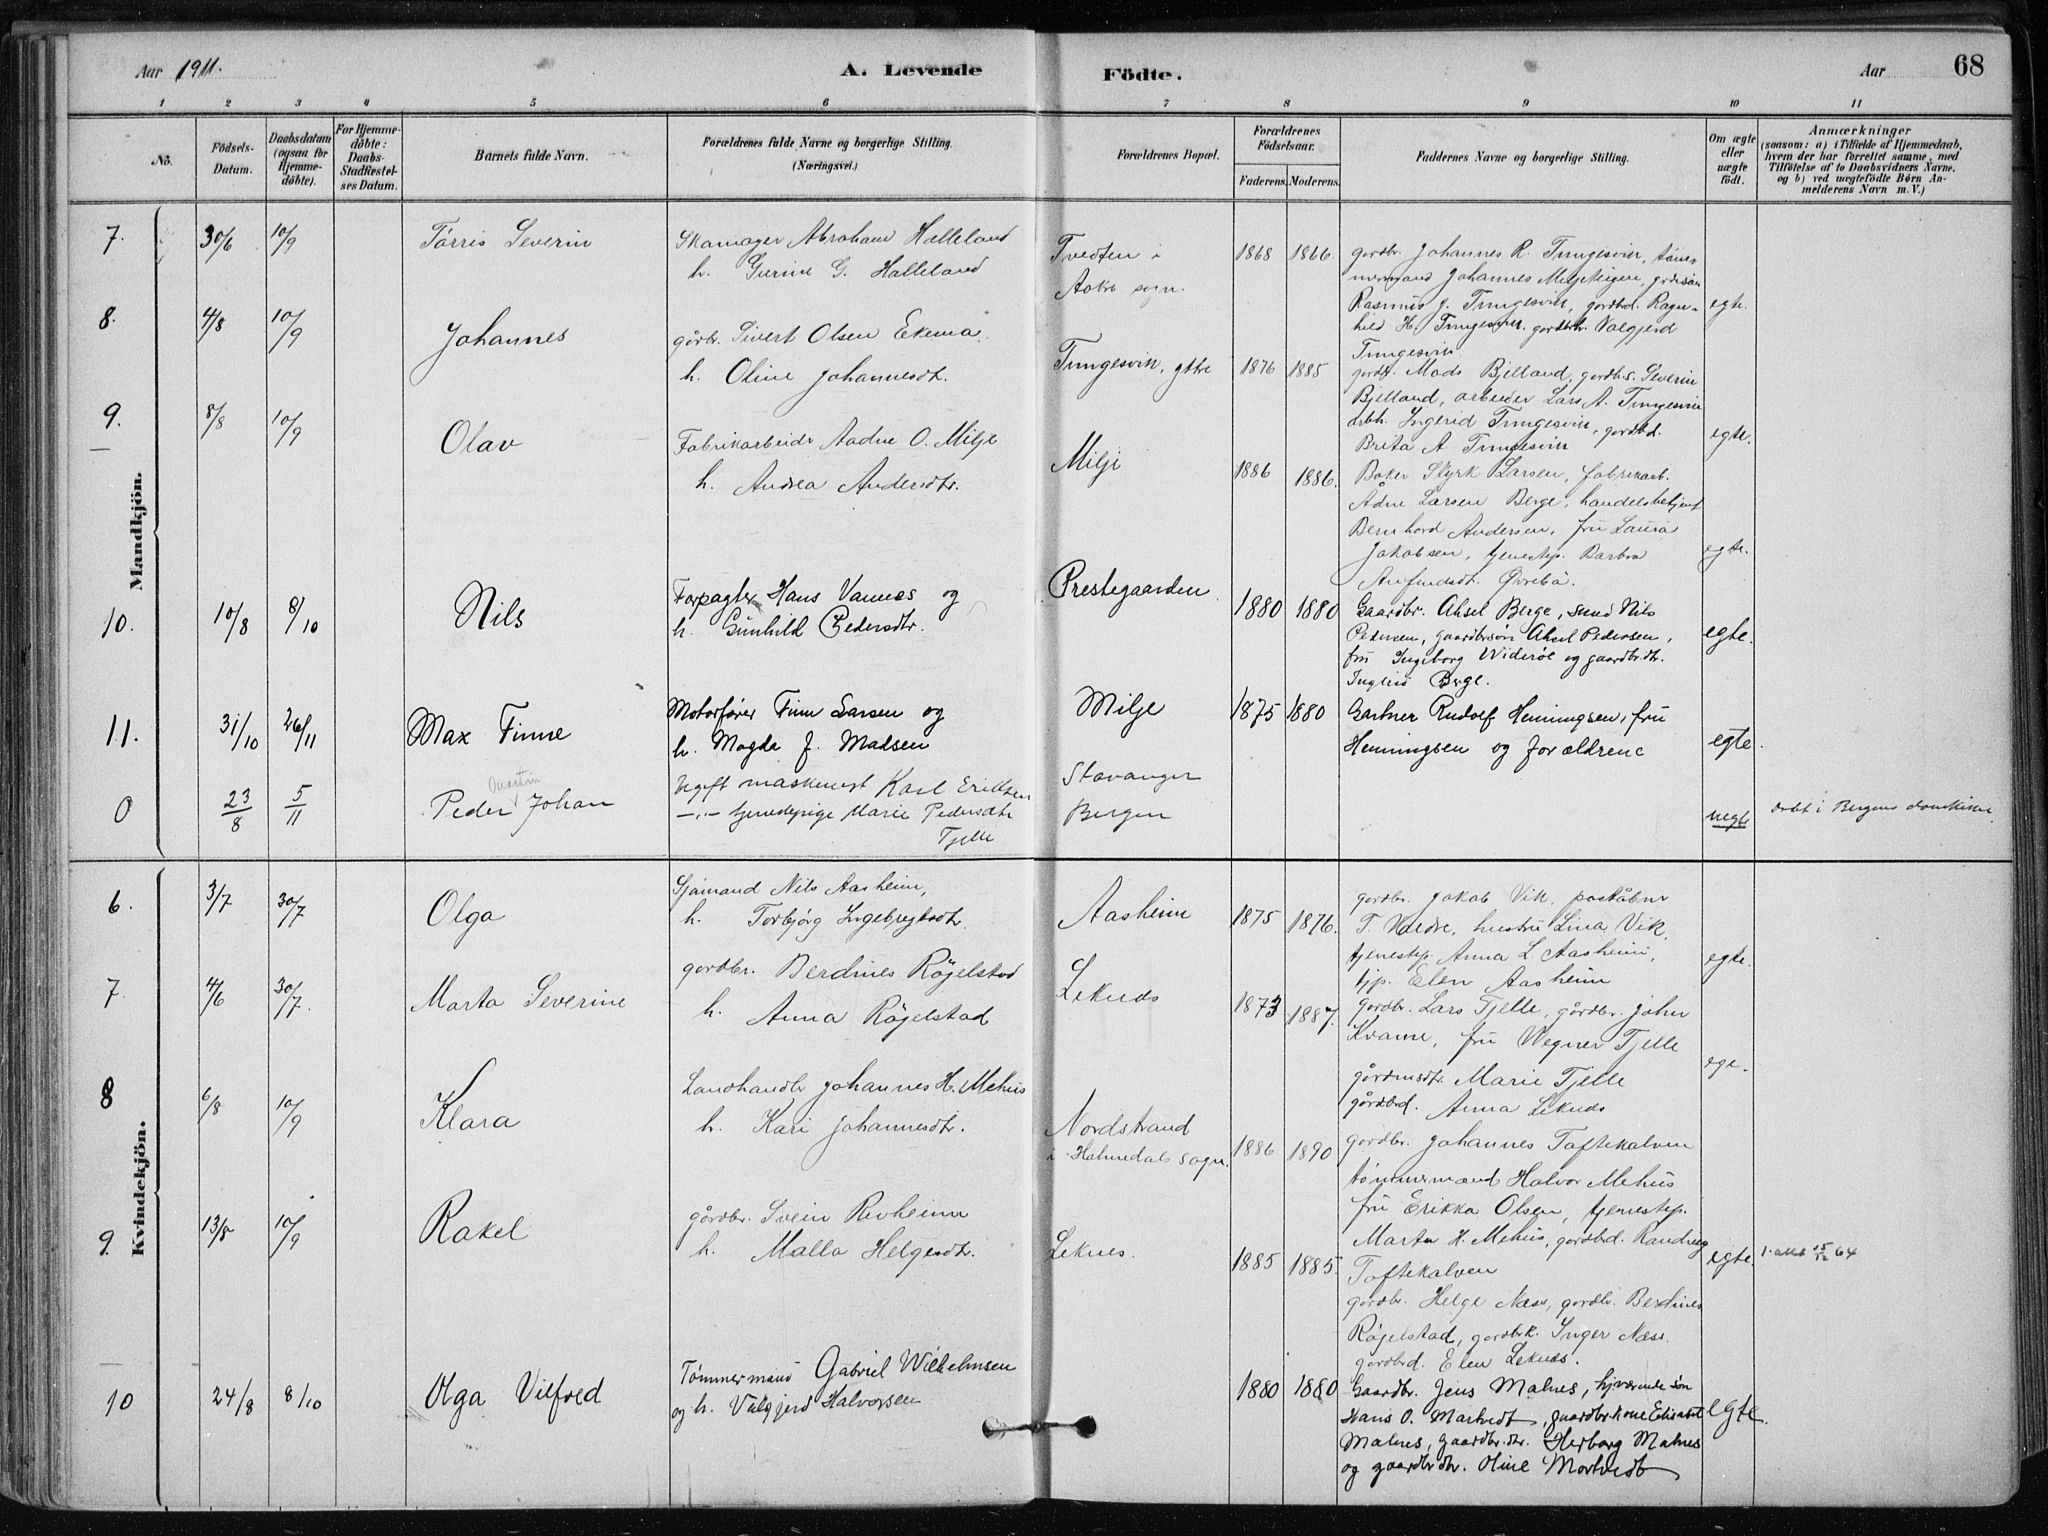 Aar 1911.
A. Levende Födte.
Aar
68
1 2 3 4 5 6 7 8 9 10 11
No.
Födsels-Datum.
Daabsdatum (ogsaa for Hjemme-döbte).
For Hjemme-döbte: Daabs-Stadfæstel-ses Datum.
Barnets fulde Navn.
Forældrenes fulde Navne og borgerlige Stilling. (Næringsvei.)
Forældrenes Bopæl.
Forældrenes Födselsaar.
Faderens. Moderens.
Faddernes Navne og borgerlige Stilling.
Om ægte eller uægte födt.
Anmærkninger
(saasom: a) i Tilfælde af Hjemmedaab, hvem der har forrettet samme, med Tilföielse af to Daabsvidners Navne. og b) ved uægtefödte Börn An-melderens Navn m. V.)
Mandkjön.
7. 30/6 10/9 Tørris Severin
Skomager Abraham Halleland
h. Gurine G. Halleland
Tvedten i
Aakre sogn.
1868 1866.
gordbr. Johannes R. Tungesvik, töm-
mermand Johannes
Rasmus J. Tungesvik, gordbd. Ragn-
hild H. Tungesvik, gordbr. Valgjerd
Tungesvik
egte.
8. 4/8 10/9 Johannes
gårbr. Sivert Olsen Ekema
h. Oline Johannesdt.
Tungesvik, ytre
1876 1885
gordb. Mads Bjelland, gordb.s. Severin
Bjelland, arbeider Lars A. Tungesvik
arbh. Ingerid Tungesvik, gordbd.
Brita A. Tungesvik
egte.
9. 8/8 10/9 Olav
Fabrikarbeider Aadne O. Milje
h. Andrea Andersdtr.
Milje
1886 1886.
Baker Styrk Larsen, fabrikarb.
Ådne Larsen Berge, handelsbetjent
Bernhard Andersen, fru Laura
Jakobsen, tjenestp. Barbra
Anfindsdt. Øvrebö.
egte.
10. 10/8 8/10 Nils
Forpagter Hans Vannes og
h. Gunhild Pedersdtr.
Prestegaarden
1880 1880
Gaardbr. Aksel Berge, Nils
Pedersen, gaardbrsøn Aksel Pedersen,
fru Ingeborg Widerøe og gaardbr.dtr.
Ingerid Berge.
egte.
11. 31/10 26/11 Max Finne
Motorfører Finn Larsen og
h. Magda J. Madsen
Milje
1875 1880
Gartner Rudolf Henningsen, fru
Henningsen og forældrene
egte.
0 23/8 5/11 Peder Johan
Ugift maskinist Karl Eriksen
—"— tjenestepige Marie Pedersdtr
Tjelle
Stavanger
Bergen
uegte
Døbt i Bergens domkirke.
Kvindekjön.
6. 3/7 30/7 Olga
Sjömand Nils Aasheim,
h. Torbjörg Ingebrigtsdt.
Aasheim
1875 1876.
gordbr. Jakob Vik, poståbner
T. Valdre, hustru Lina Vik,
tjenestp. Anna L. Aasheim,
tjp. Elen Aasheim
egte.
7. 4/6 30/7. Marta Severine
gordbr. Berdines Röjelstad
h. Anna Röjelstad
Leknes
1873 1887.
gordbr. Lars Tjelle, gårdbr. John
Kvame, fru Wegner Tjelle
gårdmdtr. Marie Tjelle
gårdbd. Anna Leknes
ege.
8 6/8 10/9 Klara
Landhandlr Johannes H. Mehus
h. Kari Johannesdtr.
Nordstrand
i Halnedals sogn.
1886 1890
gordbr. Johannes Toftekalven
tömmermand Halvor Mehus
fru Erikka Olsen, tjenestep.
Marta H. Mehus, gordbd. Randveig
Toftekalven
egte.
9. 13/8 10/9 Rakel
gårdbr. Svein Revheim
h. Malla Helgesdtr.
Leknes.
1885 1885.
gordbr. Helge Næss, gordbr. Berdines
Röjelstad, gordbrk. Inger Næss
gordbrd. Elen Leknes.
15/12 64
10 24/8 8/10 Olga Vilfred
Tømmermand Gabriel Wilhelmsen
og h. Valgjerd Halvorsen
1880 1880
Gaardbr. Jens Malnes, hjværende søn
Hans O. Martvedt, gaardbr.kone Elisabet
Malnes, gaardbr.dtr. Herborg Malnes
og gaardbrdtr. Oline Mortvedt
egte.